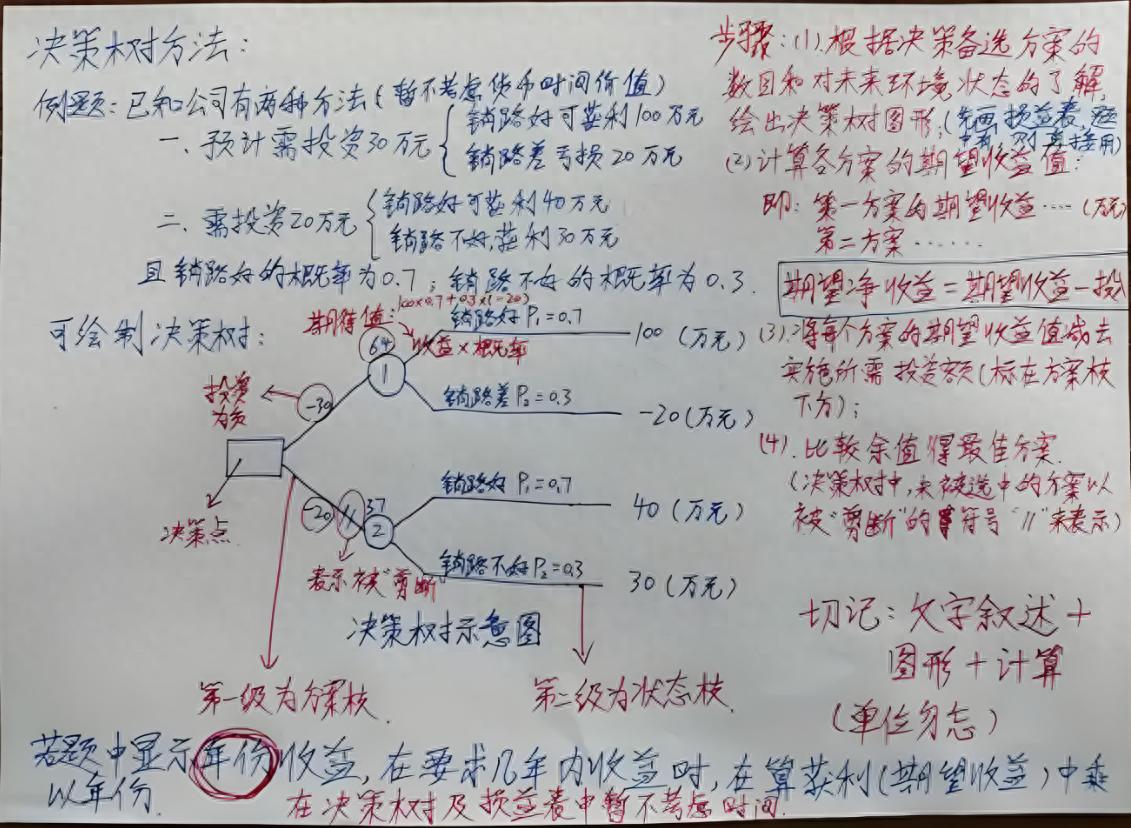 决策树方法：
例题：已知公司有两种方法（暂不考虑货币时间价值）
一、预计需投资30万元
销路好可获利100万元
销路差亏损20万元
二、需投资20万元
销路好可获利40万元
销路不好，获利30万元
且销路好的概率为0.7；销路不好的概率为0.3.
可绘制决策树：
期得值：
100×0.7+0.3×(-20)
收益×概率
64
1
销路好 P₁=0.7
100（万元）
销路差 P₂=0.3
-20（万元）
投资
为负
-30
决策点
-20
//
37
2
销路好 P₁=0.7
40（万元）
销路不好 P₂=0.3
30（万元）
表示被"剪断"
决策树示意图
第一级为方案枝.
第二级为状态枝.
步骤：(1).根据决策备选方案的
数目和对未来环境状态的了解，
绘出决策树图形；(先画损益表，题
中有，则直接用)
(2)计算各方案的期望收益值：
即：第一方案的期望收益……(万元)
第二方案……
期望净收益=期望收益-投
(3).将每个方案的期望收益值减去
实施所需投资额(标在方案枝
下方)；
(4).比较余值得最佳方案.
(决策树中，未被选中的方案以
被"剪断"的符号"//"来表示)
切记：文字叙述+
图形+计算
(单位勿忘)
若题中显示年份收益，在要求几年内收益时，在算获利(期望收益)中乘
以年份.
在决策树及损益表中暂不考虑时间.